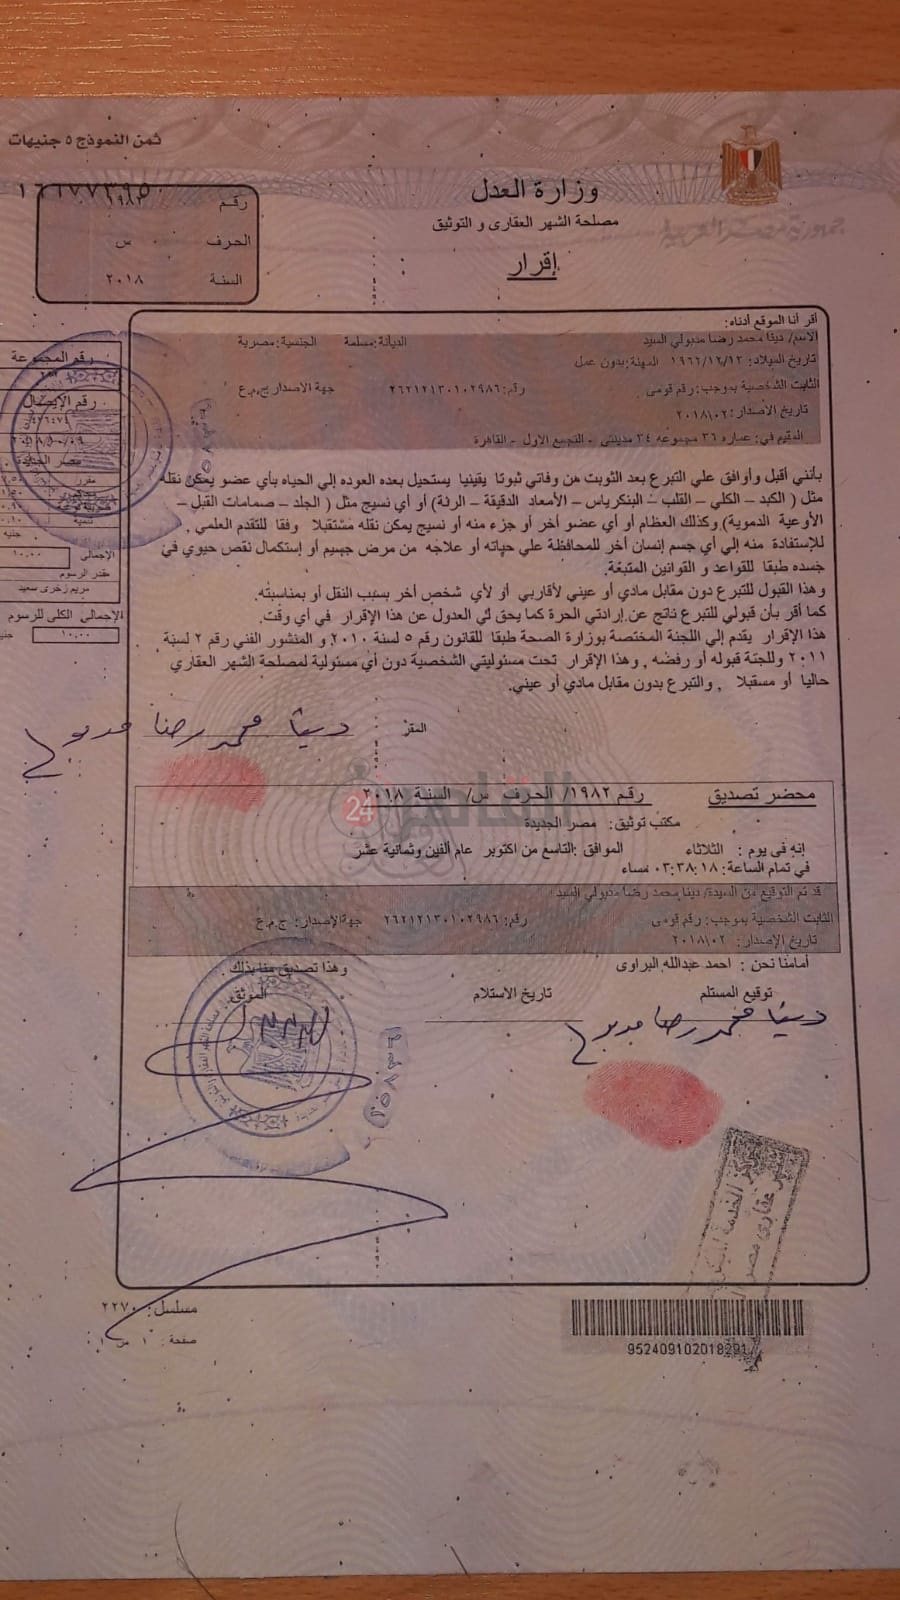 ثمن النموذج ٥ جنيهات
١٦٦٧٧٣٩٥
وزارة العدل
جمهورية مصر العربية
مصلحة الشهر العقارى و التوثيق
إقرار
رقم ١٩٨٢
الحرف س
السنة ٢٠١٨
أقر أنا الموقع أدناه:
الاسم/ دينا محمد رضا مدبولي السيد الديانة: مسلمة الجنسية: مصرية
تاريخ الميلاد: ١٩٦٢/١٢/١٣ المهنة: بدون عمل
الثابت الشخصية بموجب: رقم قومى رقم: ٢٦٢١٢١٣٠١٠٢٩٨٦ جهة الاصدار: ج.م.ع
تاريخ الاصدار: ٢٠١٨/٠٢
المقيم في: عماره ٣٦ مجموعه ٣٤ مدينتى - التجمع الاول - القاهرة
بأنني أقبل وأوافق علي التبرع بعد الثوبت من وفاتي ثبوتا يقينيا يستحيل بعده العوده إلي الحياه بأي عضو يمكن نقله
مثل ( الكبد – الكلي – القلب – البنكرياس – الأمعاء الدقيقة – الرئة) أو أي نسيج مثل ( الجلد – صمامات القبل –
الأوعية الدموية) وكذلك العظام أو أي عضو أخر أو جزء منه أو نسيج يمكن نقله مستقبلا وفقا للتقدم العلمي ,
للإستفادة منه إلي أي جسم إنسان أخر للمحافظة علي حياته أو علاجه من مرض جسيم أو إستكمال نقص حيوي في
جسده طبقا للقواعد و القوانين المتبعة.
وهذا القبول للتبرع دون مقابل مادي أو عيني لأقاربي أو لأي شخص أخر بسبب النقل أو بمناسبته.
كما أقر بأن قبولي للتبرع ناتج عن إرادتي الحرة كما يحق لي العدول عن هذا الإقرار في أي وقت.
هذا الإقرار يقدم إلي اللجنة المختصة بوزارة الصحة طبقا للقانون رقم ٥ لسنة ٢٠١٠, و المنشور الفني رقم ٢ لسنة
٢٠١١ وللجنة قبوله أو رفضه , وهذا الإقرار تحت مسئوليتي الشخصية دون أي مسئولية لمصلحة الشهر العقاري
حاليا أو مستقبلا , والتبرع بدون مقابل مادي أو عيني.
المقر دينا محمد رضا مدبولي
رقم المجموعة
رقم الإيصال
مصر الجديدة
مقرر
الإجمالي ١٠,٠٠
مقدر الرسوم
مريم زخرى سعيد
الإجمالي الكلى للرسوم
١٠,٠٠ جنيه
القاهرة 24
محضر تصديق رقم ١٩٨٢/ الحرف س/ السنة ٢٠١٨
مكتب توثيق: مصر الجديدة
إنه فى يوم : الثلاثاء الموافق :التاسع من اكتوبر عام ألفين وثمانية عشر
في تمام الساعة: ٠٣:٣٨:١٨ مساء
قد تم التوقيع من السيدة/ دينا محمد رضا مدبولي السيد
الثابت الشخصية بموجب: رقم قومى رقم: ٢٦٢١٢١٣٠١٠٢٩٨٦ جهة الإصدار: ج.م.ع
تاريخ الإصدار: ٢٠١٨/٠٢
أمامنا نحن : احمد عبدالله البراوى وهذا تصديق منا بذلك .
توقيع المستلم تاريخ الاستلام الموثق
دينا محمد رضا مدبولي
مسلسل: ٢٢٧٠
صفحة ١ من ١
952409102018291